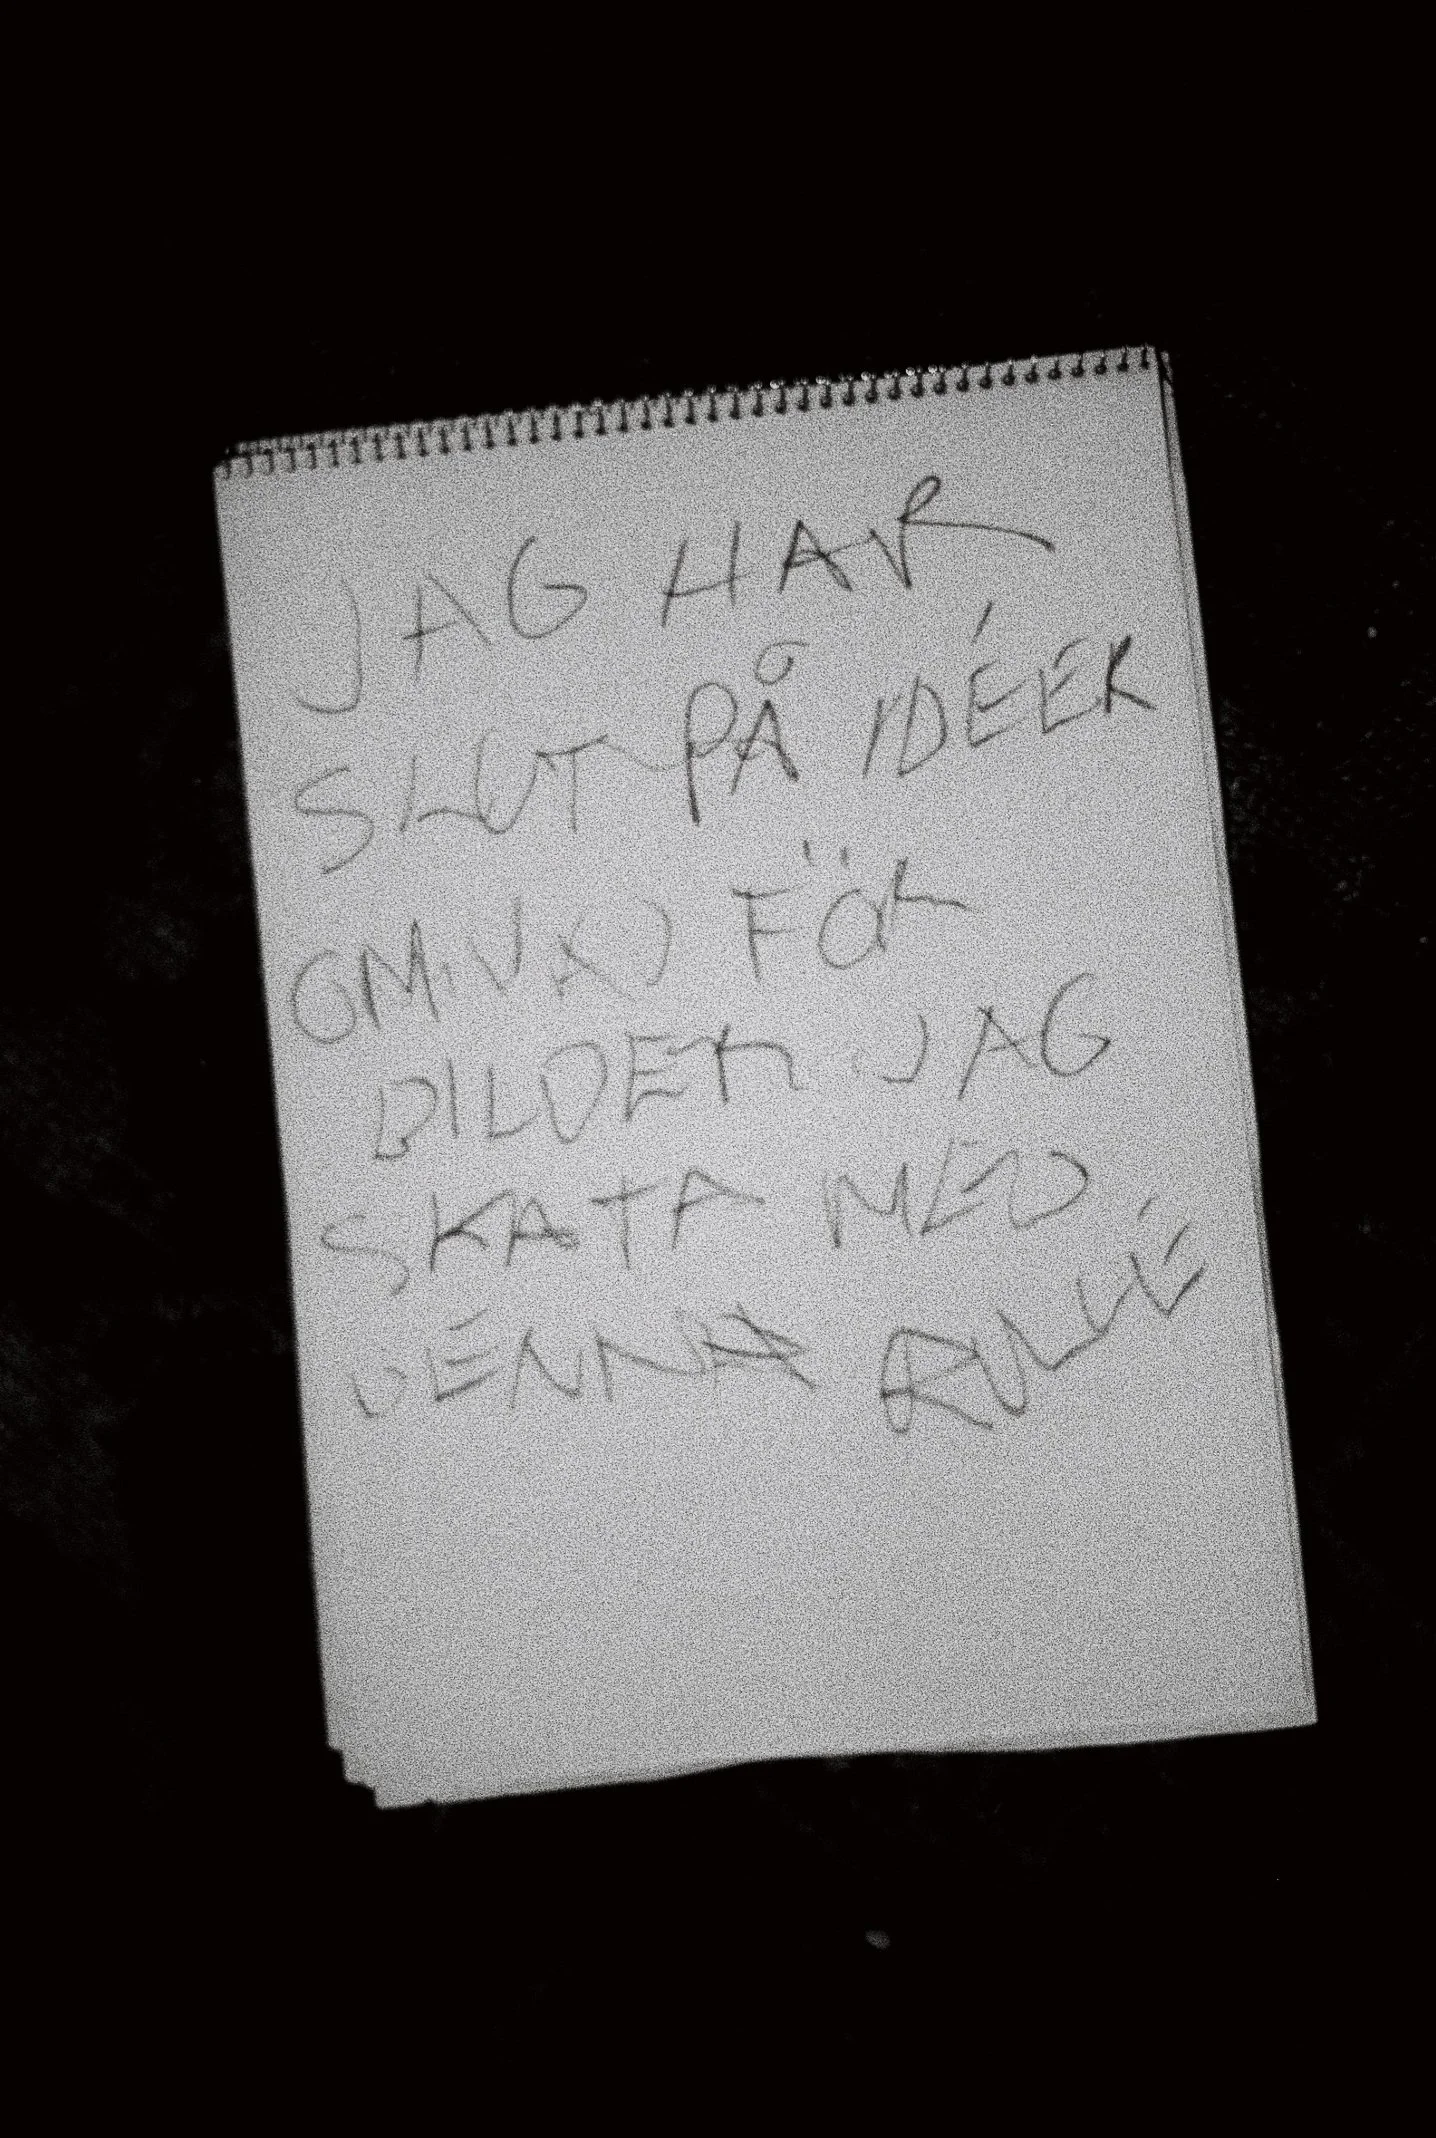 JAG HAR
SLUT PÅ IDÉER
OM VAD FÖR
BILDER JAG
SKATA MED
DENNA RULLE